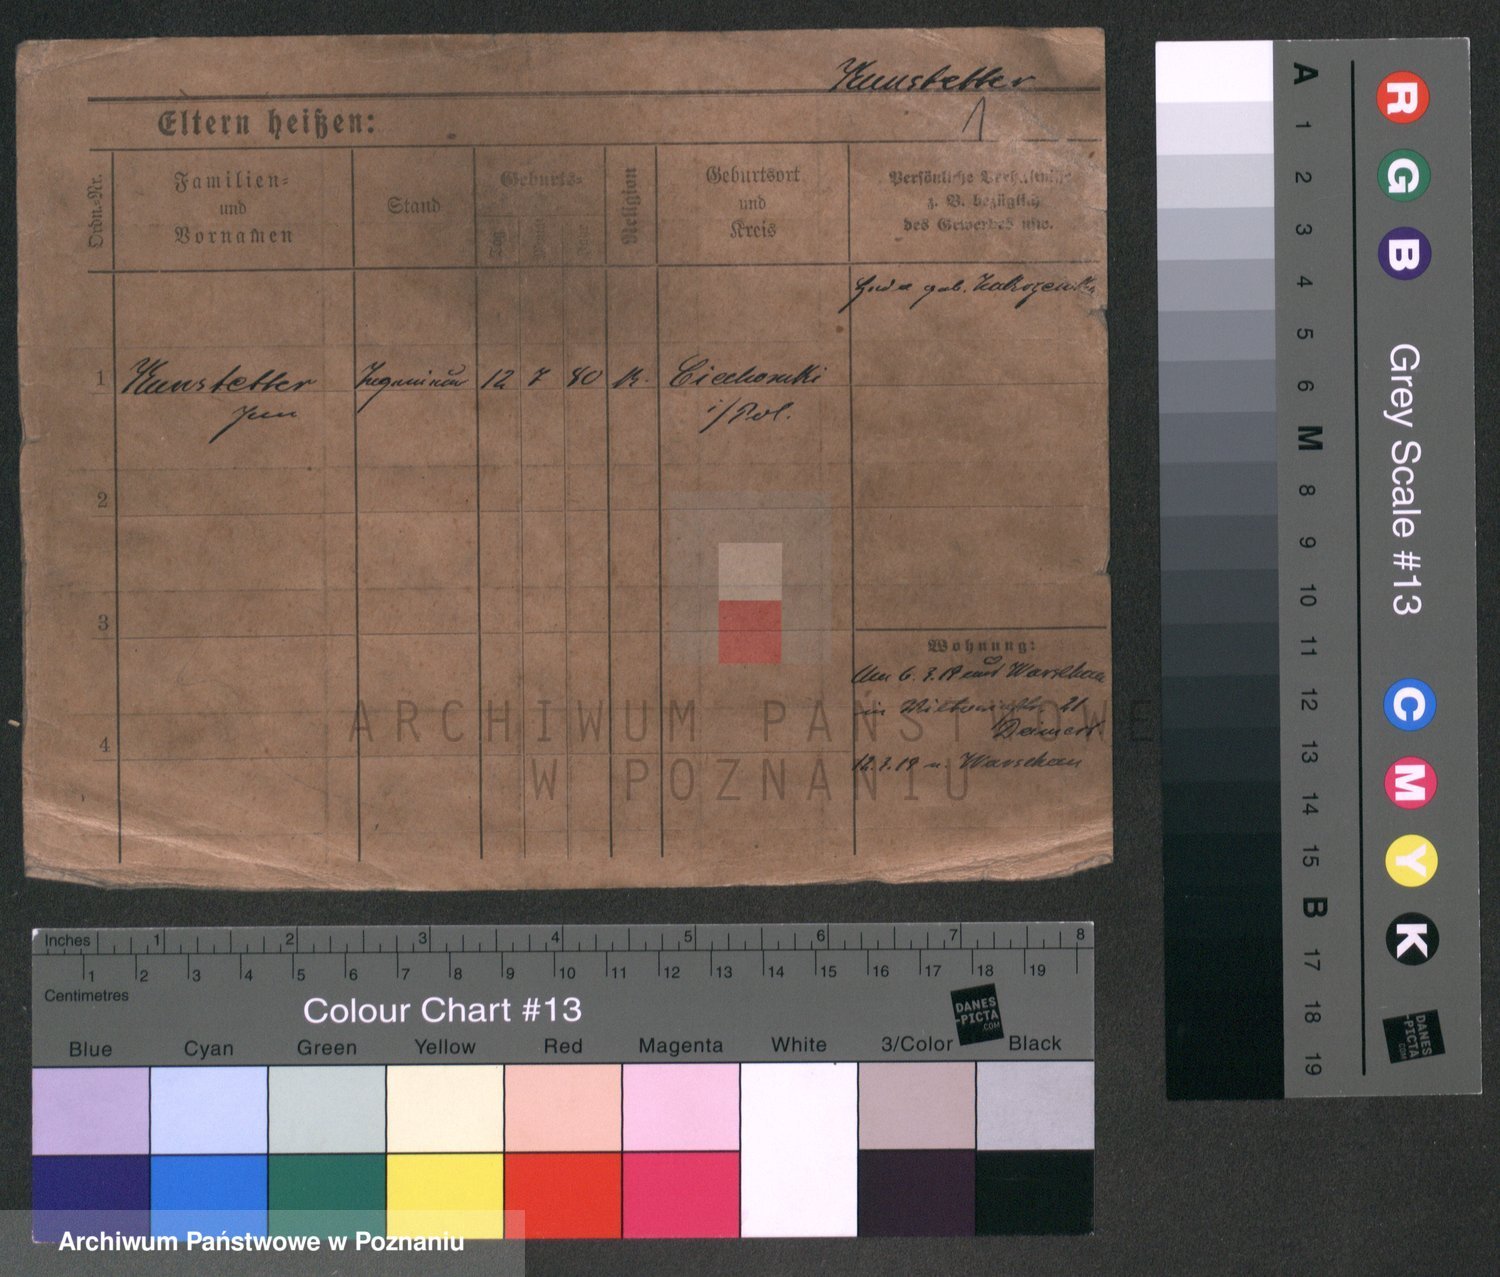 Kunstetter
1
Eltern heißen:
Ordn.-Nr.
Familien-
und
Vornamen
Stand
Geburts-
Tag
Religion
Geburtsort
und
Kreis
Persönliche Verhältnisse
z. B. bezüglich
des Gewerbes usw.
gab.
1 Kunstetter Ingenieur 12 7 80 K. Ciechocinki
Jan i/Pol.
2
3
Wohnung:
Am 6. 3. 19 aus Warschau
in
21
4
12.3.19 n. Warschau
ARCHIWUM PAŃSTWOWE
W POZNANIU
Inches 1 2 3 4 5 6 7 8
1 2 3 4 5 6 7 8 9 10 11 12 13 14 15 16 17 18 19
Centimetres
Colour Chart #13
DANES
-PICTA
.COM
Blue Cyan Green Yellow Red Magenta White 3/Color Black
Archiwum Państwowe w Poznaniu
A 1 2 3 4 5 6 M 8 9 10 11 12 13 14 15 B 17 18 19
R G B
Grey Scale #13
C M Y K
DANES
-PICTA
.COM